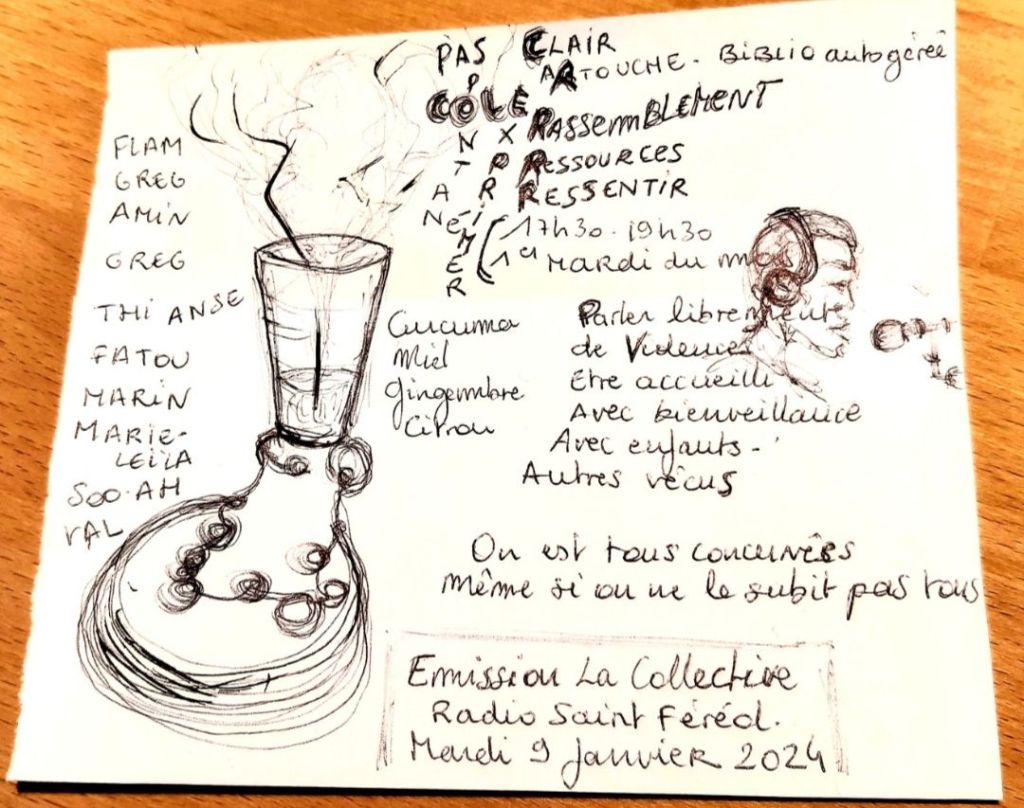 PAS CLAIR
ARTOUCHE. BiBLiO autogérée
P
COLE
RASSEMBLEMENT
N X
RESSOURCES
T P
RESSENTIR
A R
NÉ I
M
E
R
17h30 - 19h30
1er MARDi du mois
FLAM
GREG
AMiN
GREG
THi ANSE
FATOU
MARiN
MARiE-
LEiLA
SOO-AH
VAL
Curcuma
Miel
Gingembre
Citron
Parler librement
de Violences
Etre accueilli
Avec bienveillance
Avec enfants -
Autres vécus
On est tous concernées
même si on ne le subit pas tous
Emission La Collective
Radio Saint Féréol.
Mardi 9 Janvier 2024